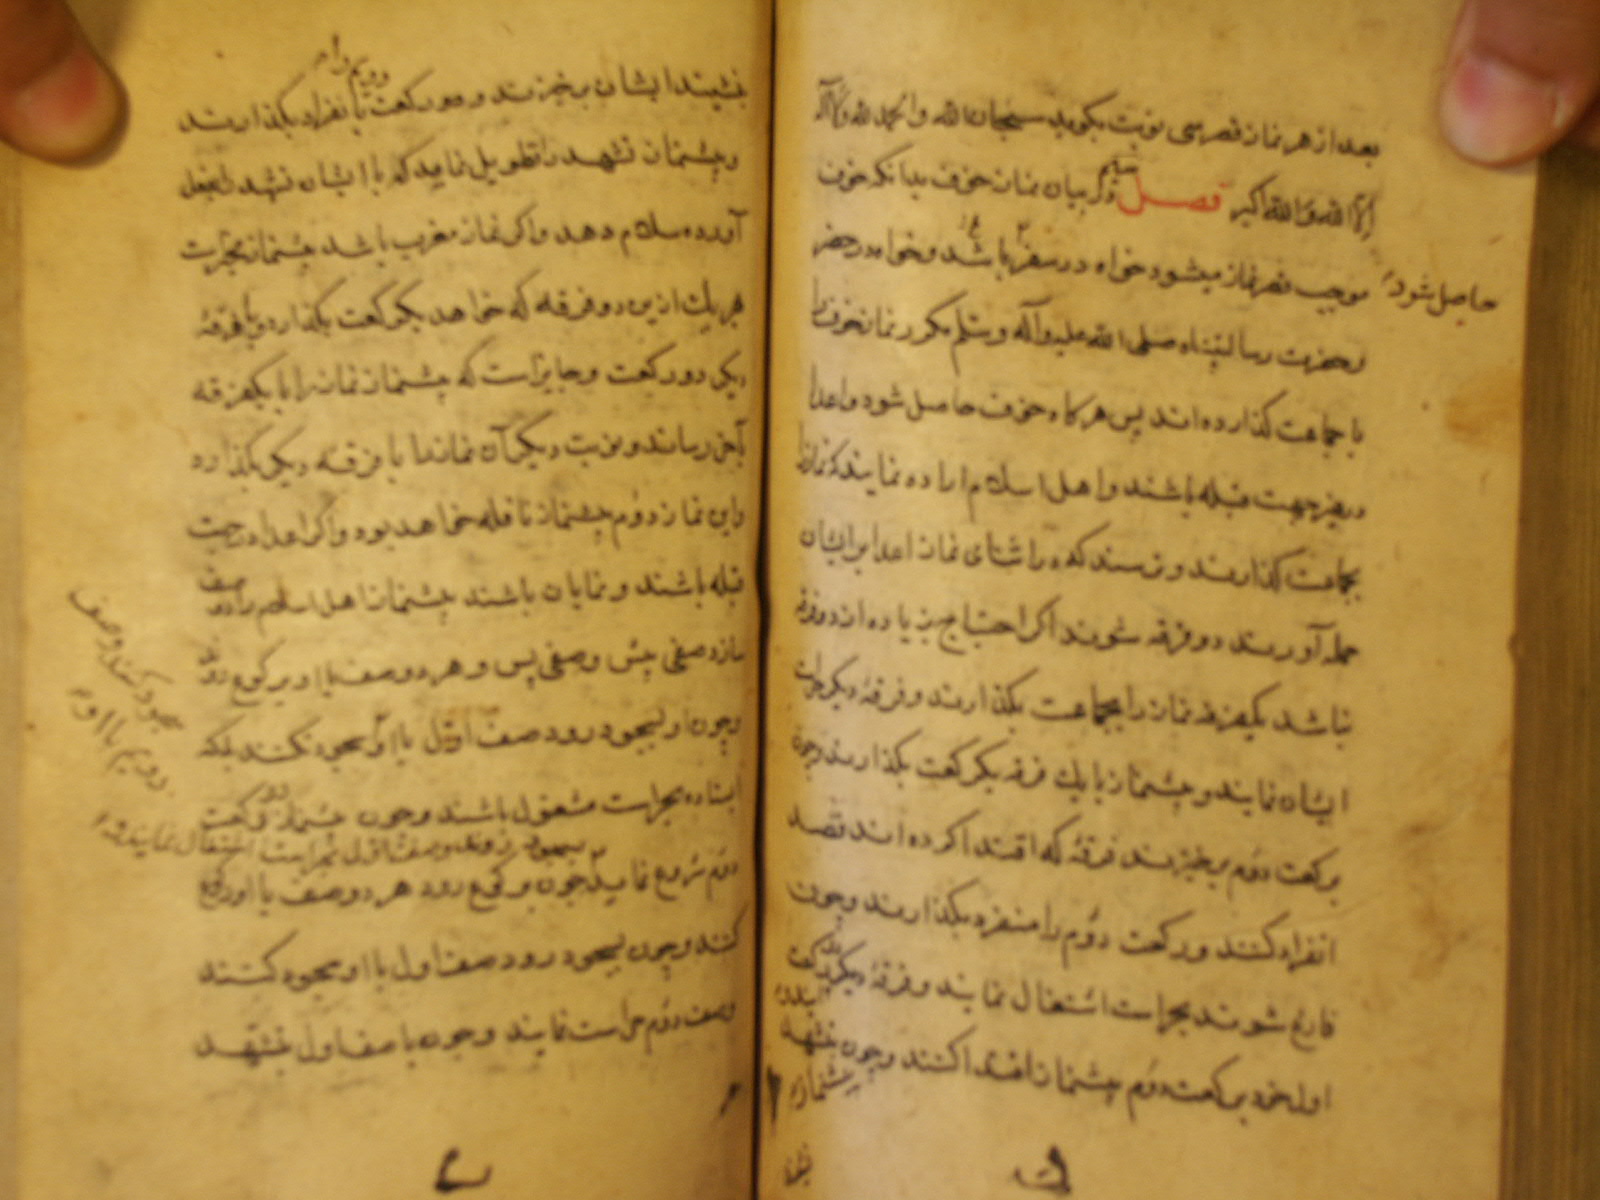 بعد از هر نماز قصر سی نوبت بگوید سبحان الله والحمد لله ولا اله
الا الله والله اکبر فصل در بیان نماز خوف بدانکه خوف
موجب قصر نماز میشود خواه در سفر باشد و خواه در حضر
حاصل شود
و حضرت رسالتپناه صلی الله علیه وآله وسلم مکرر نماز خوف را
با جماعت کذارده اند پس هر کاه خوف حاصل شود و اعدا
در غیر جهت قبله باشند و اهل اسلام اراده نمایند که نماز را
بجماعت کذارند و ترسند که در اثنای نماز اعدا بر ایشان
حمله آورند دو فرقه شوند اکر احتیاج بزیاده از دو فرقه
نباشد یکفرقه نماز را بجماعت بکذارند و فرقهٔ دیکر حراست
ایشان نمایند و پیشنماز با یك فرقه یکرکعت بکذارند و چون
برکعت دوم برخیزند فرقهٔ که اقتدا کرده اند قصد
انفراد کنند و رکعت دوم را منفرد بکذارند و چون
فارغ شوند بحراست اشتغال نمایند و فرقهٔ دیکر در رکعت
اول خود برکعت دوم پیشنماز اقتدا کنند و چون بتشهد
پیشنماز
بنشیند ایشان برخیزند و دو رکعت با نفراد بکذارند
و پیشنماز تشهد را تطویل نماید که با ایشان تشهد را بفعل
آورده سلام دهد و اکر نماز مغرب باشد پیشنماز مخیرست
هر یك ازین دو فرقه که خواهد یکرکعت بکذارد و با فرقهٔ
دیکر دو رکعت و جایز است که پیشنماز نماز را با یکفرقه
بآخر رساند و نوبت دیکر آن نماز را با فرقهٔ دیکر بکذارد
و این نماز دوم پیشنماز نافله خواهد بود و اکر اعدا در جهت
قبله باشند و نمایان باشند پیشنماز اهل اسلام را دو صف
سازد صفی پیش و صفی پس و هر دو صف با او برکوع روند
و چون او بسجود رود صف اول با او سجود نکنند بلکه
ایستاده بحراست مشغول باشند و چون پیشنماز در رکعت
بسجود روند و صف اول بحراست اشتغال نمایند
دوم شروع نماید چون برکوع رود هر دو صف با او رکوع
کنند و چون بسجود رود صف اول با او سجود کنند
وصف دوم حراست نمایند و چون با صف اول بتشهد
سجود کنند و صف
دویم با او